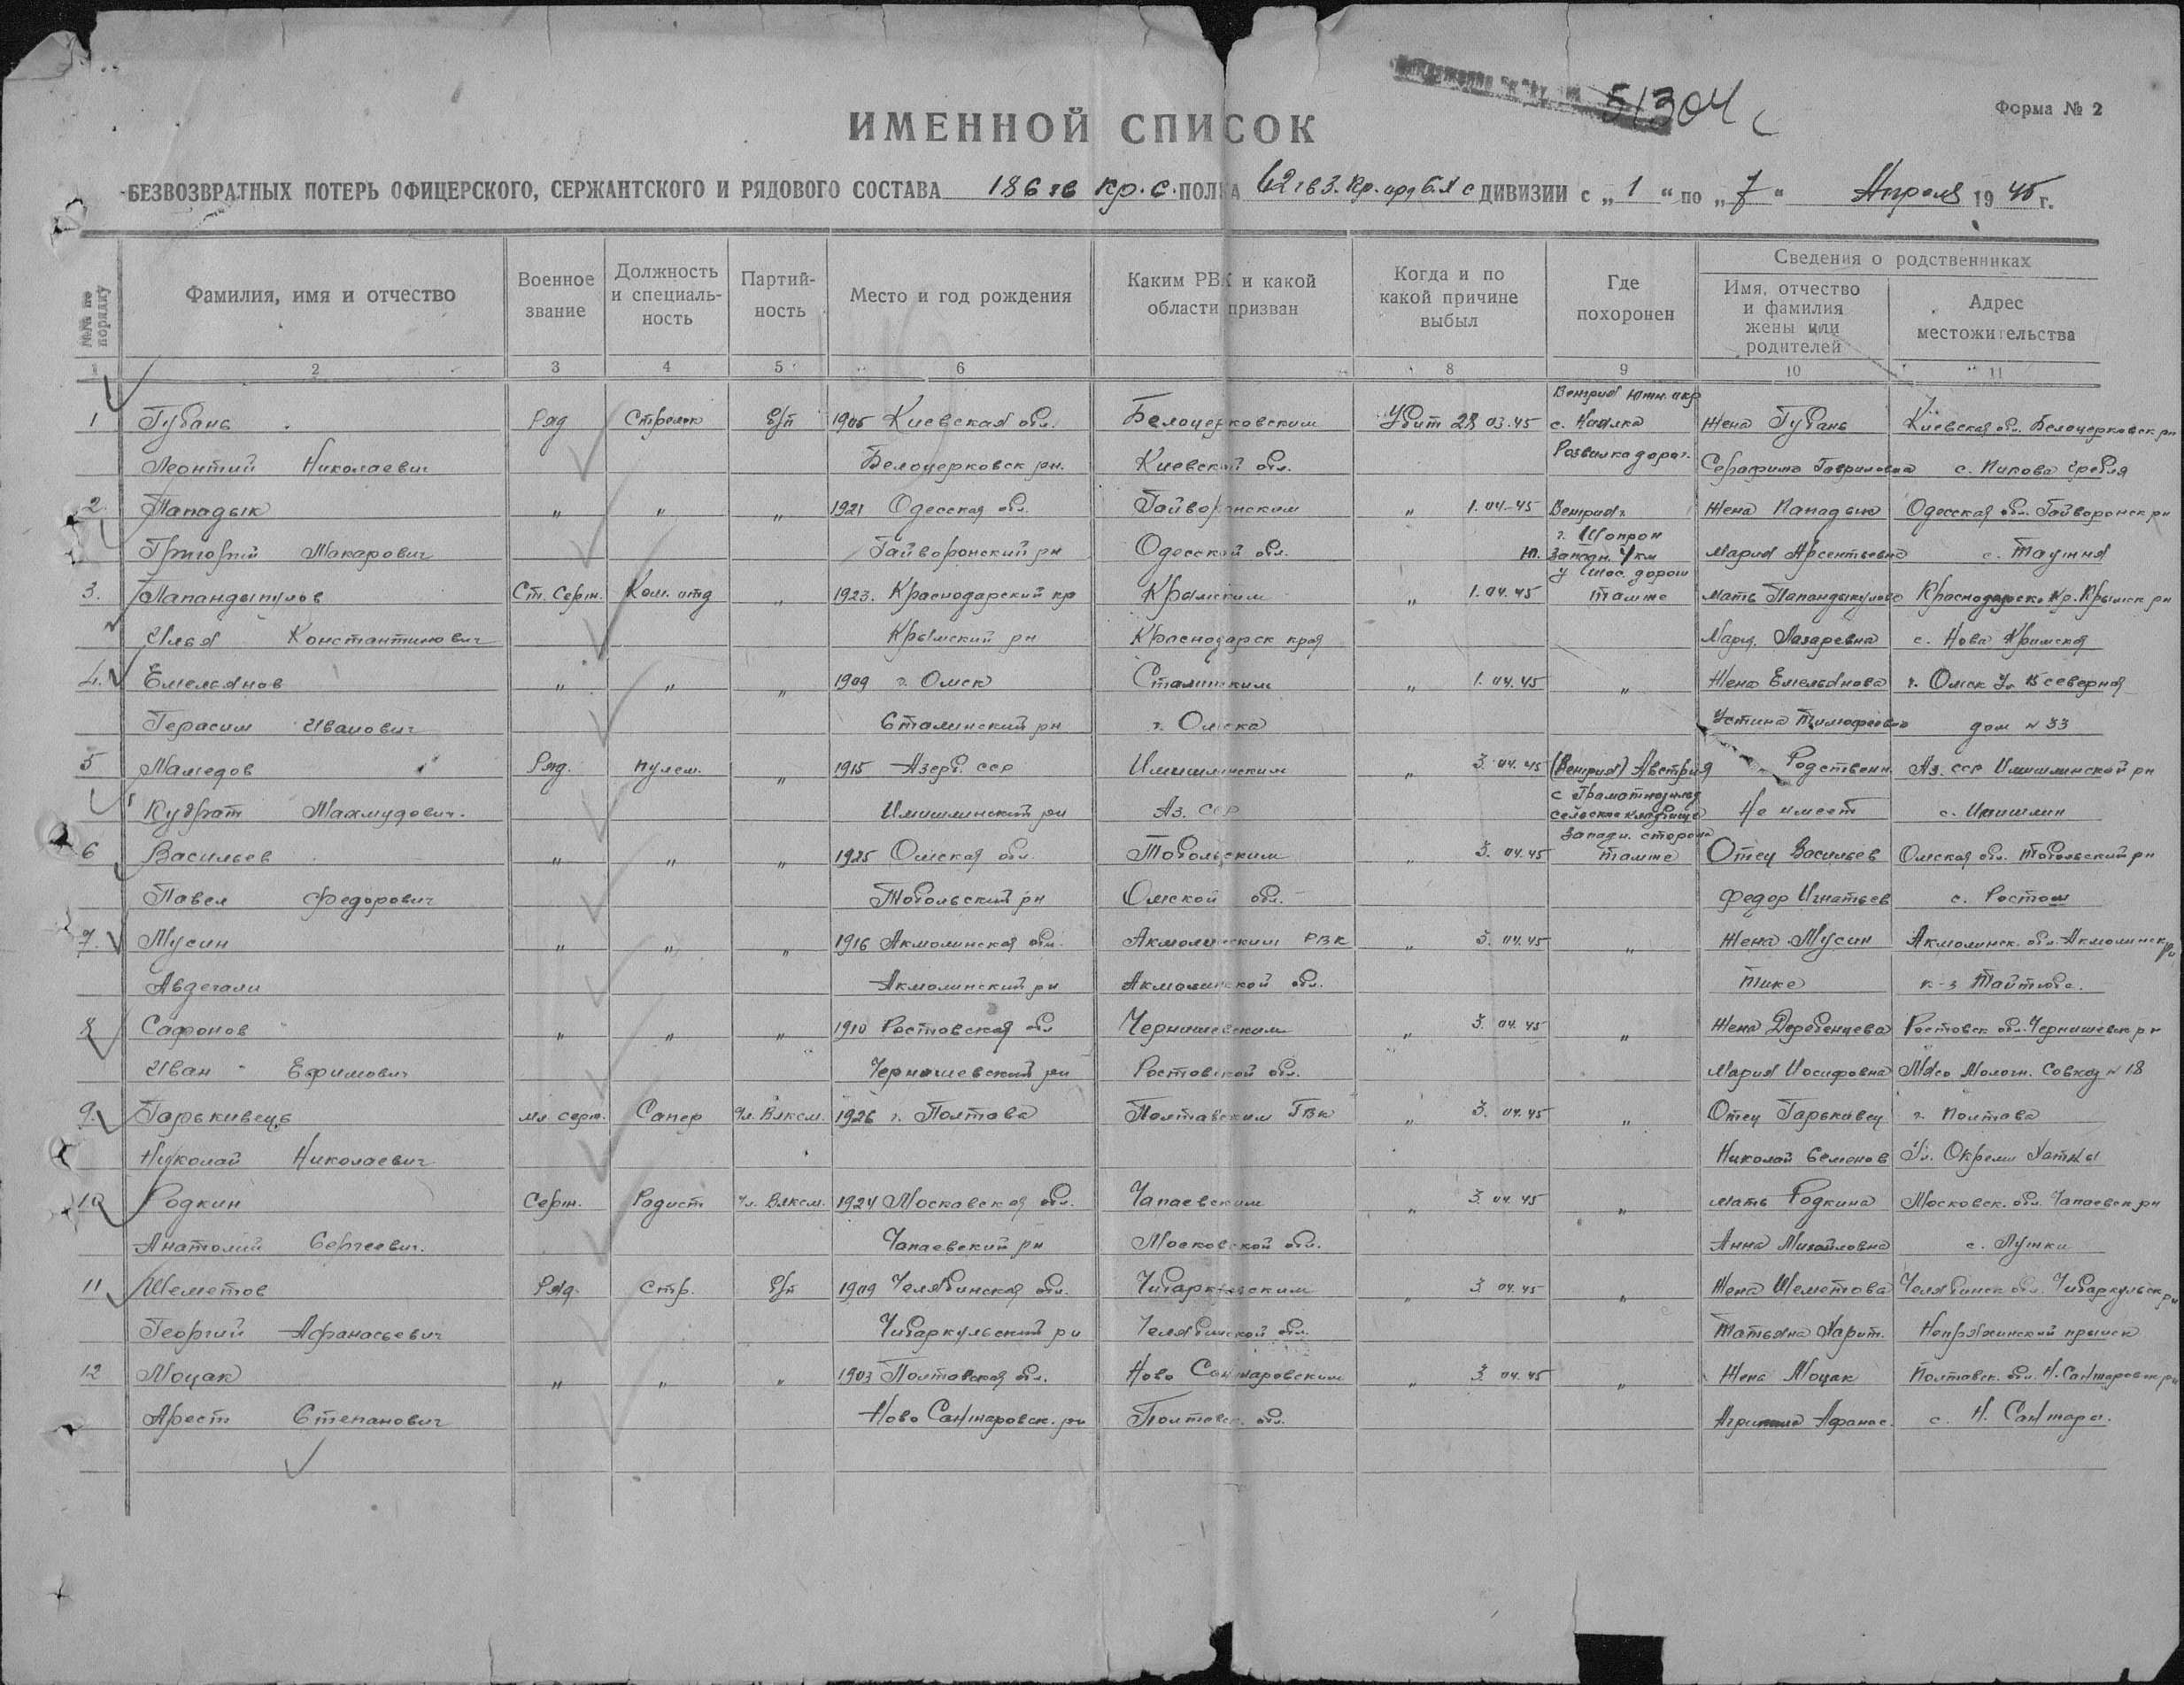 51304 с
Форма № 2
ИМЕННОЙ СПИСОК
БЕЗВОЗВРАТНЫХ ПОТЕРЬ ОФИЦЕРСКОГО, СЕРЖАНТСКОГО И РЯДОВОГО СОСТАВА 186 гв кр. с. ПОЛКА 62 гв З. Кр. орд Б.Х с ДИВИЗИИ с „ 1 “ по „ 7 “ Апреля 19 45 г.
№№ по порядку | Фамилия, имя и отчество | Военное звание | Должность и специальность | Партийность | Место и год рождения | Каким РВК и какой области призван | Когда и по какой причине выбыл | Где похоронен | Сведения о родственниках
Имя, отчество и фамилия жены или родителей | Адрес местожительства
1 2 3 4 5 6 8 9 10 11
Венгрия
1 Губань Ряд Стрелок б/п 1906 Киевская обл. Белоцерковским Убит 28 03.45 с. Жена Губань Киевская обл. Белоцерковск рн
Леонтий Николаевич Белоцерковск рн. Киевской обл. Развилка дорог. Серафима Гавриловна с. Пикова Гребля
2. Пападык " " " 1921 Одесская обл. Гайворонским " 1.04.45 Венгрия Жена Пападык Одесская обл. Гайворонск рн
г. Шопрон
Григорий Макарович Гайворонский рн Одесской обл. Ю. Западн. 4 км Мария Арсентьевна с. Таужня
у шос. дорош
3. Папандыпулов Ст. Серж. Ком. отд " 1923. Краснодарский кр Крымским " 1.04.45 там же Мать Папандыкулово Краснодарск. Кр. Крымск рн
Илья Константинович Крымский рн Краснодарск края Мария Лазаревна с. Нова Кримская
4. Емельянов " " " 1909 г. Омск Сталинским " 1.04.45 " Жена Емельянова г. Омск Ул 15 северная
Герасим Иванович Сталинский рн г. Омска Устина Тимофеевна дом № 33
5 Мамедов Ряд. пулем. " 1915 Азерб. сср Имишлинским " 3.04.45 (Венгрия) Австрия Родственн. Аз. сср Имишлинский рн
Кудрат Махмудович. Имишлинский рн Аз. Сср сельское кладбище Не имеет с. Имишлин
Западн. сторона
6 Васильев " " " 1925 Омская обл. Тобольским " 3.04.45 там же Отец Васильев Омская обл. Тобольский рн
Павел Федорович Тобольский рн Омской обл. Федор Игнатьев с. Ростош
7. Мусин " " " 1916 Акмолинская обл. Акмолинским РВК " 3.04.45 " Жена Мусин Акмолинск. обл. Акмолинск рн
Авдегали Акмолинский рн Акмолинской обл. Тике к-з Тайтюбе.
8 Сафонов " " " 1910 Ростовская обл Чернишевским " 3.04.45 " Жена Деребенцева Ростовск обл. Чернишевск рн
Иван Ефимович Чернишевский рн Ростовской обл. Мария Иосифовна Мясо Молочн. Совхоз № 18
9. Горькивець мл серж. Сапер Чл. Влксм. 1926 г. Полтава Полтавским ГВК " 3.04.45 " Отец Горькивец г. Полтава
Николай Николаевич Николай Семенов Ул. Окреми Хатки
10 Родкин Серж. Радист Чл. Влксм. 1924 Московская обл. Чапаевским " 3.04.45 " Мать Родкина Московск. обл. Чапаевск рн
Анатолий Сергеевич. Чапаевский рн Московской обл. Анна Михайловна с. Лушки
11 Шеметов Ряд. Стр. б/п 1909 Челябинская обл. Чибаркульским " 3.04.45 " Жена Шеметова Челябинск обл. Чибаркульск рн
Георгий Афанасьевич Чибаркульский рн Челябинской обл. Татьяна Харит. Непряхинский прыиск
12 Моцак " " " 1903 Полтавская обл. Ново Санжаровским " 3.04.45 " Жена Моцак Полтавск. обл. Н. Санжаровск рн
Арест Степанович Ново Санжаровск. рн Полтавск. обл. Агрипина Афанас. с. Н. Санжары.